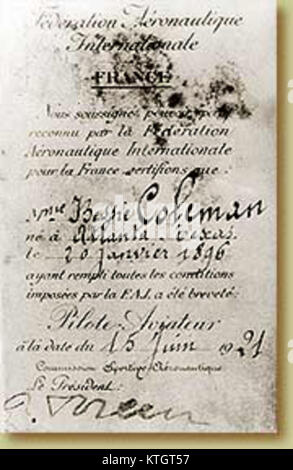 Fédération Aéronautique
Internationale
FRANCE
Nous soussignés pouvoir sportif
reconnu par la Fédération
Aéronautique Internationale
pour la France certifions que :
Mme Bessie Coleman
né à Atlanta, Texas
le 20 janvier 1896
ayant rempli toutes les conditions
imposées par la F.A.I. a été breveté :
Pilote-Aviateur
à la date du 15 Juin 1921
Commission Sportive Aéronautique
Le Président :
alamy
Image ID: KTGT57
www.alamy.com